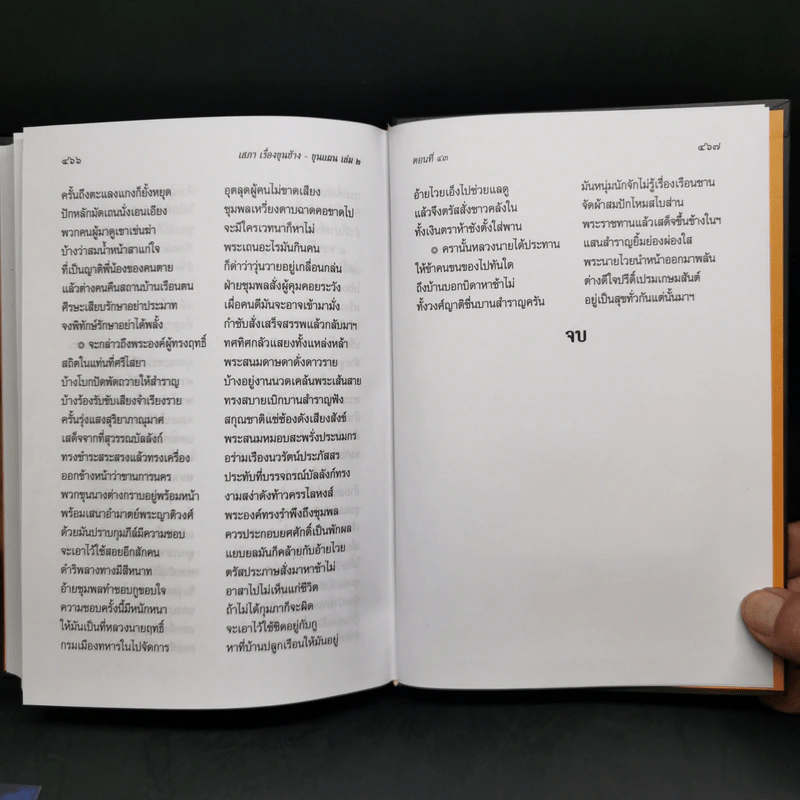 ๔๖๖ เสภา เรื่องขุนช้าง - ขุนแผน เล่ม ๒
ครั้นถึงตะแลงแกงก็ยั้งหยุด อุตลุดผู้คนไม่ขาดเสียง
ปักหลักมัดเถนนั่งเอนเอียง ขุมพลเหวี่ยงดาบฉาดคอขาดไป
พวกคนผู้มาดูเขาเช่นฆ่า จะมีใครเวทนาก็หาไม่
บ้างว่าสมน้ำหน้าสาแก่ใจ พระเถนอะไรมันกินคน
ที่เป็นญาติพี่น้องของคนตาย ก็ด่าว่าวุ่นวายอยู่เกลื่อนกล่น
แล้วต่างคนคืนสถานบ้านเรือนตน ฝ่ายชุมพลสั่งผู้คุมคอยระวัง
ศีรษะเสียบรักษาอย่าประมาท เผื่อคนดีมันจะอาจเข้ามามั่ง
จงพิทักษ์รักษาอย่าได้พลั้ง กำชับสั่งเสร็จสรรพแล้วกลับมาฯ
๏ จะกล่าวถึงพระองค์ผู้ทรงฤทธิ์ ทศทิศกลัวแสยงทั้งแหล่งหล้า
สถิตในแท่นที่ศรีไสยา พระสนมดาษดาดั่งดาวราย
บ้างโบกปัดพัดถวายให้สำราญ บ้างอยู่งานนวดเคล้นพระเส้นสาย
บ้างร้องรับขับเสียงจำเรียงราย ทรงสบายเบิกบานสำราญฟัง
ครั้นรุ่งแสงสุริยาภาณุมาศ สกุณชาติแซ่ซ้องดังเสียงสังข์
เสด็จจากที่สุวรรณบัลลังก์ พระสนมหมอบสะพรั่งประนมกร
ทรงชำระสระสรงแล้วทรงเครื่อง อร่ามเรืองนวรัตน์ประภัสสร
ออกข้างหน้าว่าขานการนคร ประทับที่บรรจถรณ์บัลลังก์ทรง
พวกขุนนางต่างกราบอยู่พร้อมหน้า งามสง่าดังท้าวครรไลหงส์
พร้อมเสนาอำมาตย์พระญาติวงศ์ พระองค์ทรงรำพึงถึงชุมพล
ด้วยมันปราบกุมภีล์มีความชอบ ควรประกอบยศศักดิ์เป็นพักผล
จะเอาไว้ใช้สอยอีกสักคน แยบยลมันก็คล้ายกับอ้ายไวย
ดำริพลางทางมีสีหนาท ตรัสประภาษสั่งมาหาช้าไม่
อ้ายชุมพลทำชอบกูขอบใจ อาสาไปไม่เห็นแก่ชีวิต
ความชอบครั้งนี้มีหนักหนา ถ้าไม่ได้กุมภาก็จะผิด
ให้มันเป็นที่หลวงนายฤทธิ์ จะเอาไว้ใช้ชิดอยู่กับกู
กรมเมืองทหารในไปจัดการ หาที่บ้านปลูกเรือนให้มันอยู่
ตอนที่ ๔๓ ๔๖๗
อ้ายไวยเอ็งไปช่วยแลดู มันหนุ่มนักจักไม่รู้เรื่องเรือนชาน
แล้วจึงตรัสสั่งชาวคลังใน จัดผ้าสมปักไหมสไบส่าน
ทั้งเงินตราห้าชั่งตั้งใส่พาน พระราชทานแล้วเสด็จขึ้นข้างในฯ
๏ ครานั้นหลวงนายได้ประทาน แสนสำราญยิ้มย่องผ่องใส
ให้ข้าคนขนของไปทันใด พระนายไวยนำหน้าออกมาพลัน
ถึงบ้านบอกบิดาหาช้าไม่ ต่างดีใจปรีดิ์เปรมเกษมสันต์
ทั้งวงศ์ญาติชื่นบานสำราญครัน อยู่เป็นสุขทั่วกันแต่นั้นมาฯ
จบ